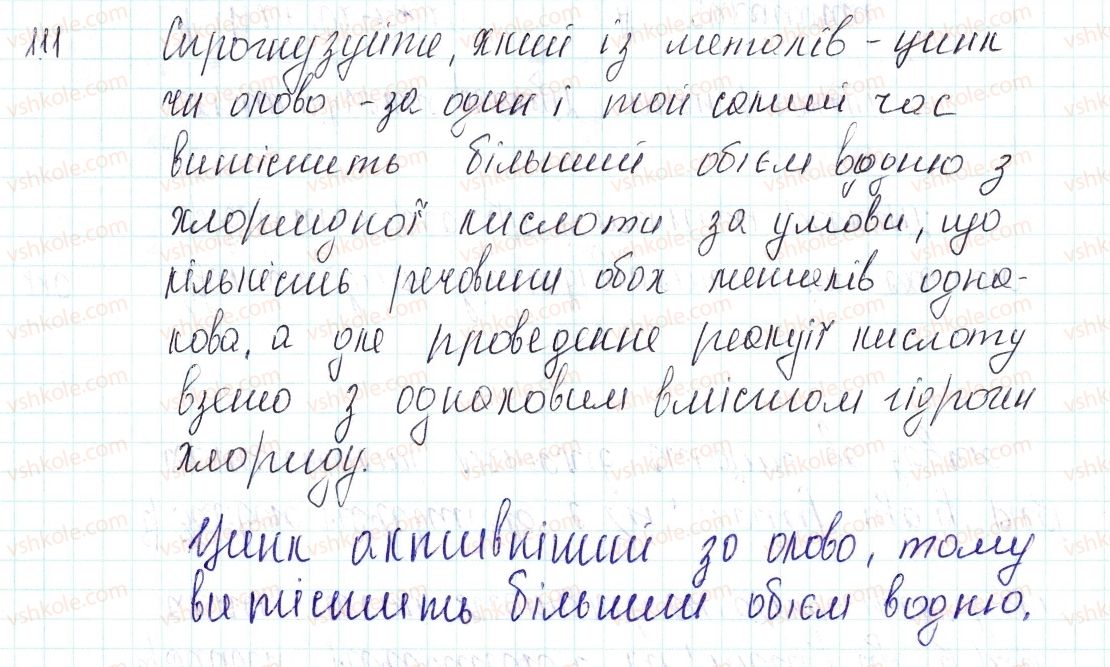 111 Спрогнузуйте, який із металів - цинк
чи олово - за один і той самий час
витіснить більший об'єм водню з
хлоридної кислоти за умови, що
кількість речовини обох металів одна-
кова, а для проведення реакції кислоту
взято з однаковим вмістом гідроген
хлориду.
Цинк активніший за олово, тому
витіснить більший об'єм водню.